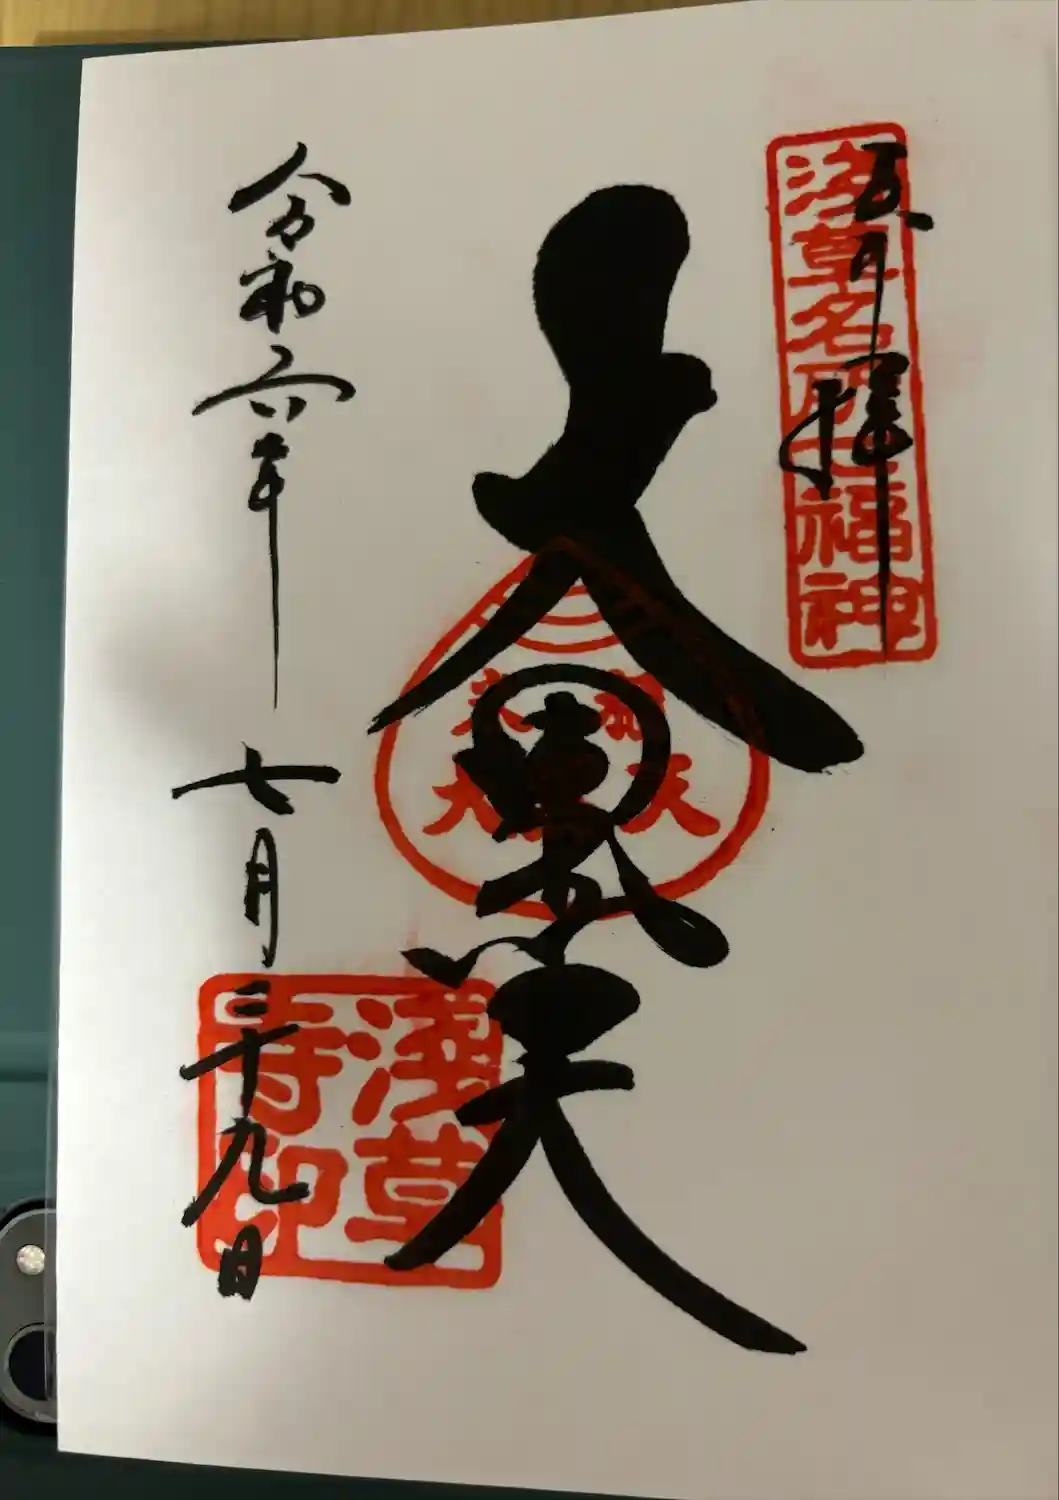 浅草名所七福神
奉拝
大黒天
令和六年
七月二十九日
淺草
寺印